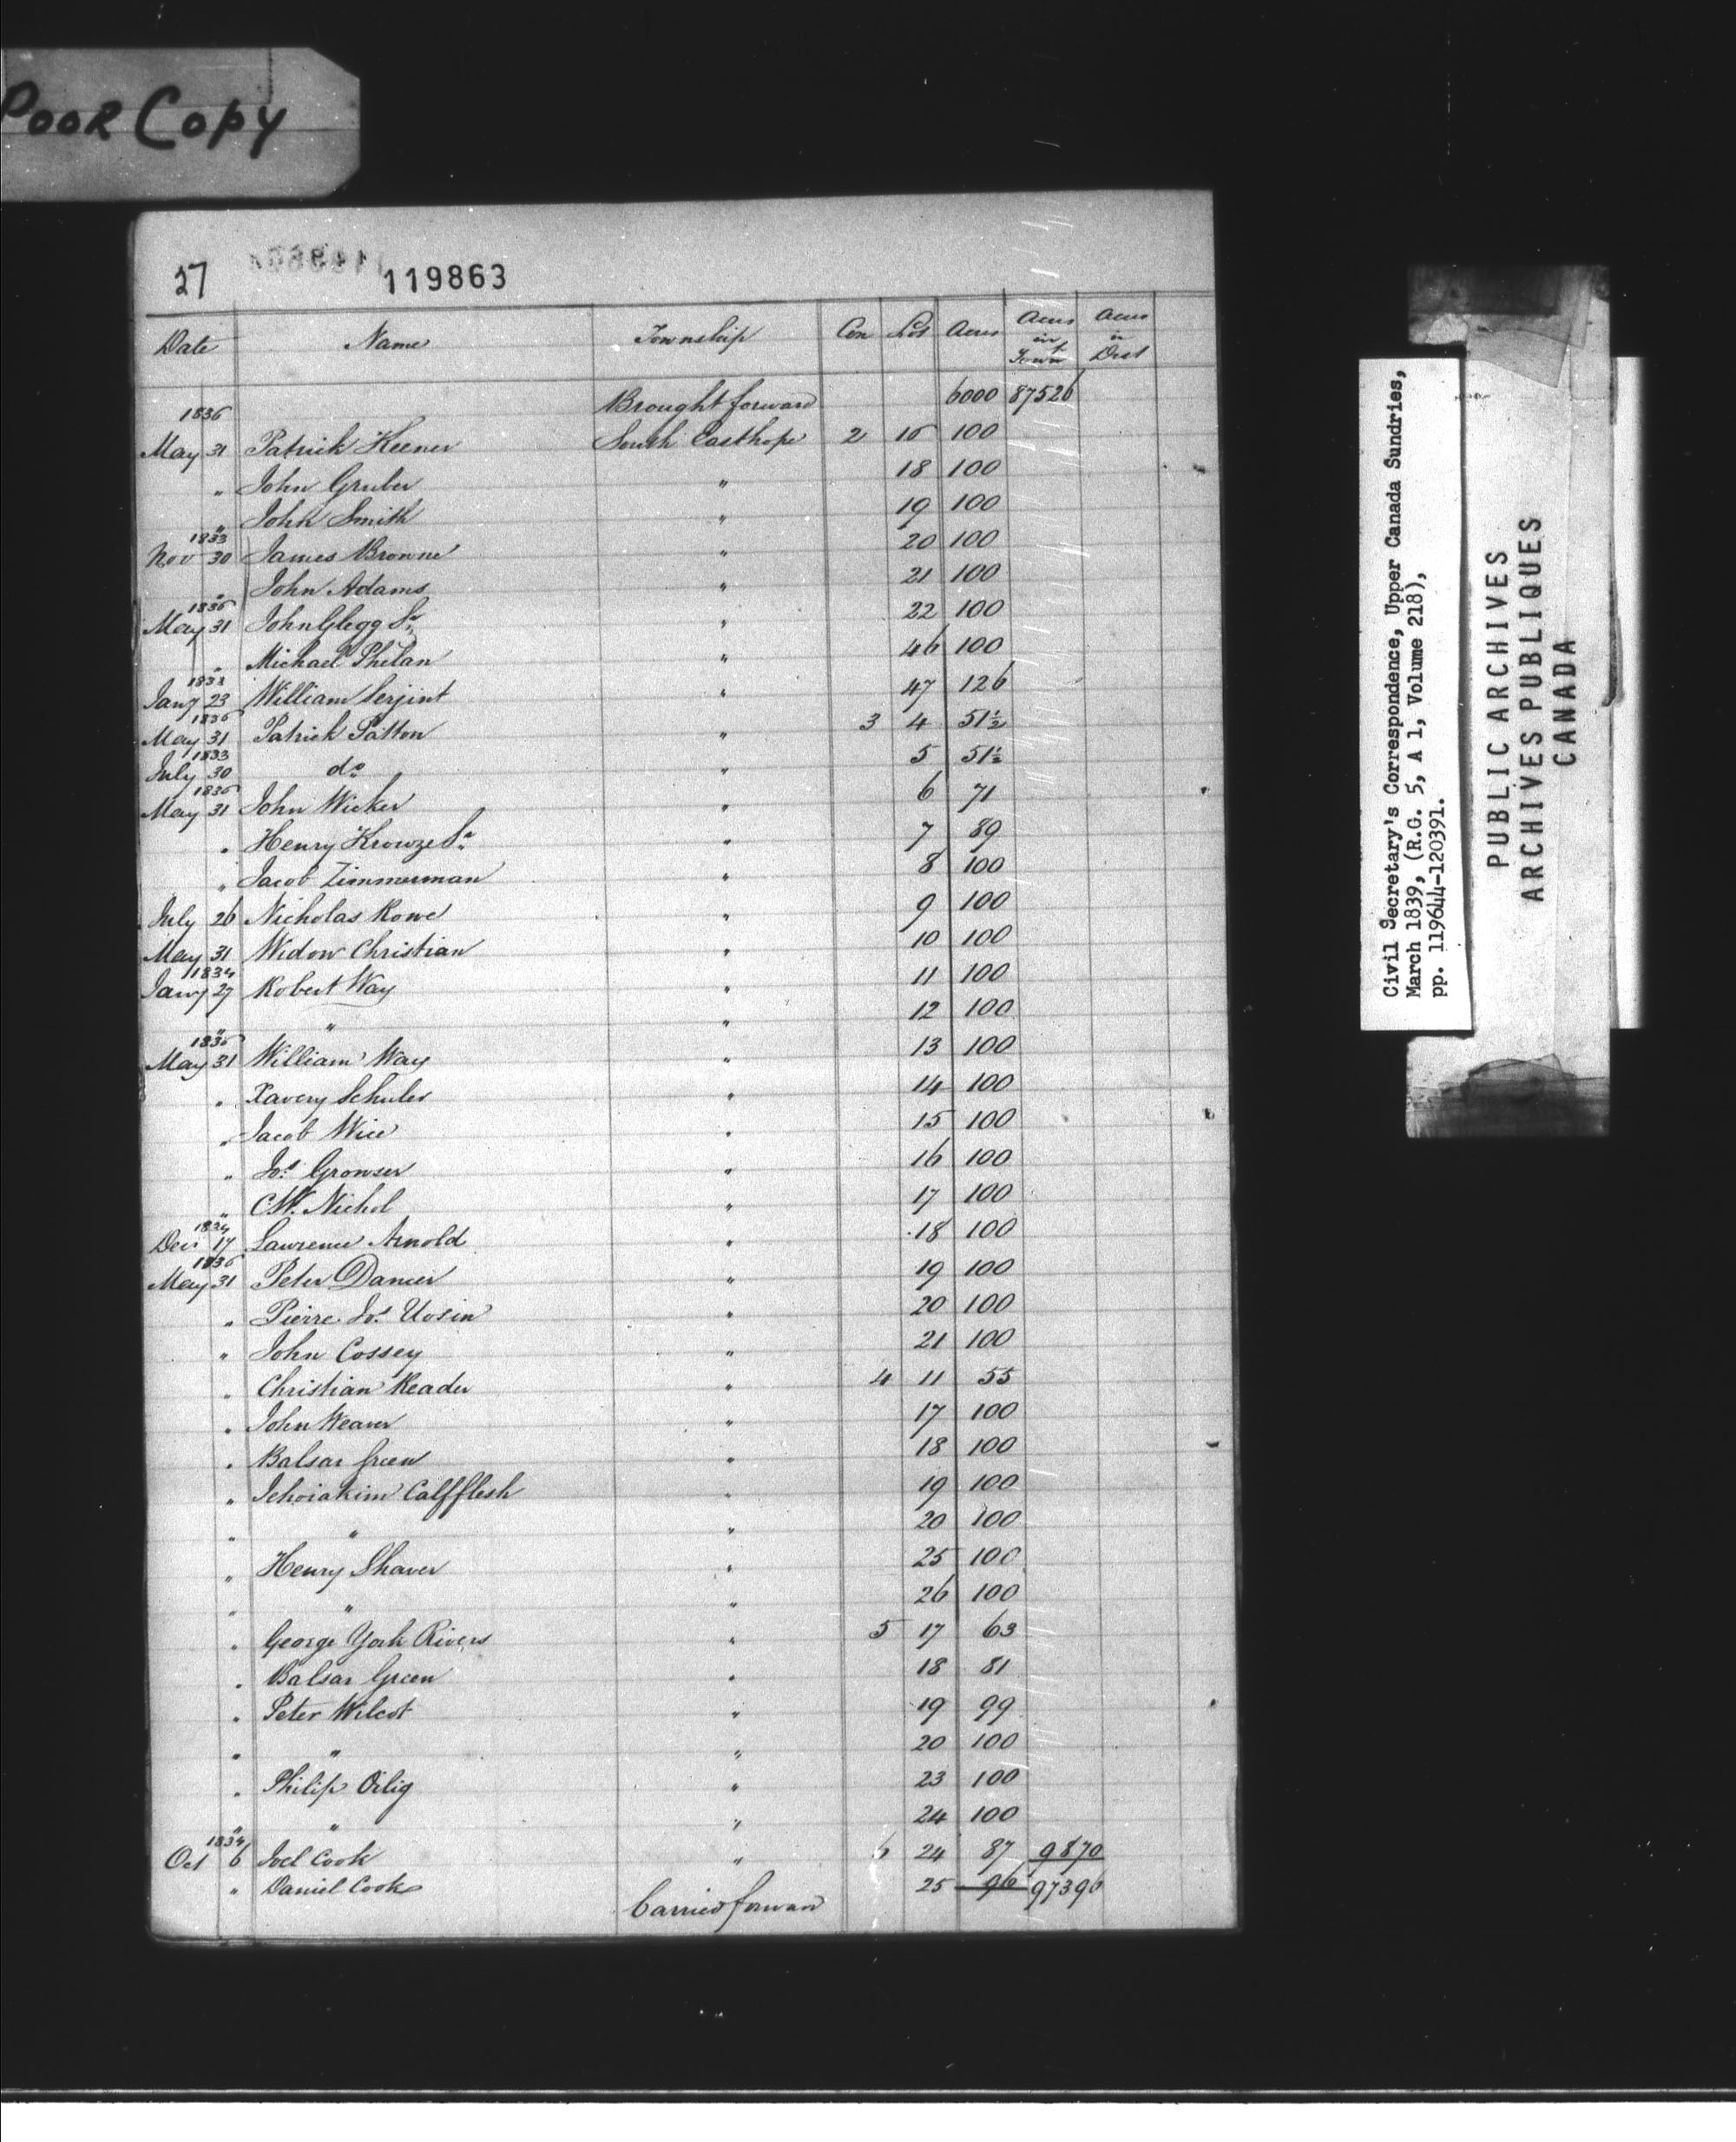 Poor Copy
27 119863
Date Name Township Con Lot Acres Acres in Town Acres in Dist
Brought forward 6000 87526
1836
May 31 Patrick Keener South Easthope 2 16 100
" John Gruber " 18 100
" John Smith " 19 100
1833
Nov 30 James Browne " 20 100
" John Adams " 21 100
1836
May 31 John Glegg Sr " 22 100
" Michael Phelan " 46 100
1833
Jany 23 William Serjint " 47 126
1836
May 31 Patrick Patton " 3 4 51½
1833
July 30 do " 5 51½
1836
May 31 John Wicker " 6 71
" Henry Krowze Sr " 7 89
" Jacob Zimmerman " 8 100
July 26 Nicholas Rowe " 9 100
May 31 Widow Christian " 10 100
1834
Jany 27 Robert Way " 11 100
" " " 12 100
1836
May 31 William Way " 13 100
" Xavery Schuler " 14 100
" Jacob Wice " 15 100
" Jos Gronser " 16 100
" C.W. Nichol " 17 100
1834
Decr 17 Lawrence Arnold " 18 100
1836
May 31 Peter Danier " 19 100
" Pierre Jos Uosin " 20 100
" John Cossey " 21 100
" Christian Reader " 4 11 55
" John Weaver " 17 100
" Balsar Green " 18 100
" Jehoiakim Calfflesh " 19 100
" " " 20 100
" Henry Shaver " 25 100
" " " 26 100
" George York Rivers " 5 17 63
" Balsar Green " 18 81
" Peter Wilcot " 19 99
" " " 20 100
" Philip Oilig " 23 100
" " " 24 100
1834
Oct 6 Joel Cook " 6 24 87 9870
" Daniel Cook 25 96 97396
Carried forward
Civil Secretary's Correspondence, Upper Canada Sundries,
March 1839, (R.G. 5, A 1, Volume 218),
pp. 119644-120391.
PUBLIC ARCHIVES
ARCHIVES PUBLIQUES
CANADA